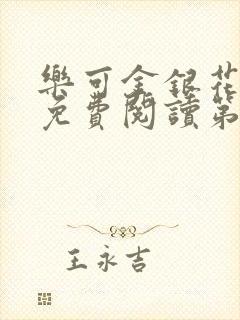 樂可金銀花
免費閱讀第
王永吉